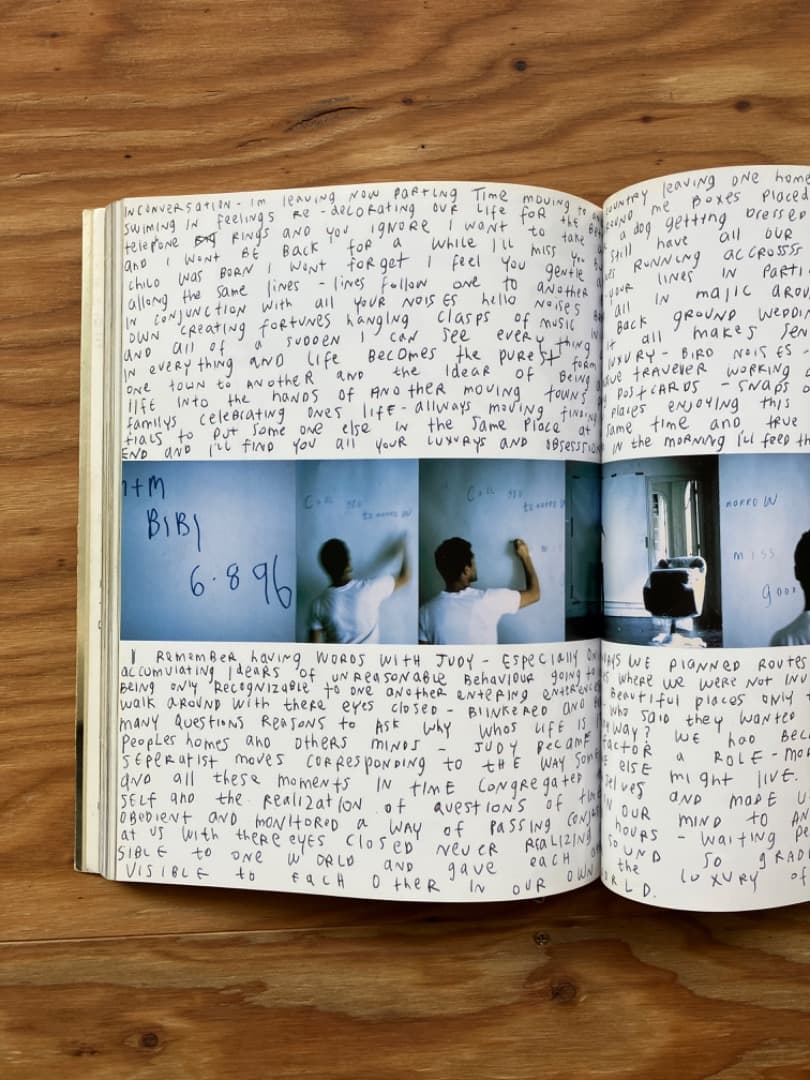 INCONVERSATION - Im leaving NOW PARTING TIME moving to
SWIMING IN FEELINGS RE-DECORATING OUR LIFE FOR the
telepone RINGS AND you IGNORE I WANT to take
and I WONT BE BACK for a while I'll miss you
CHILD WAS BORN I WONT FORGET I FEEL YOU GENTLE
allong the same lines - lines follow one to another
IN CONJUNCTION WITH all YOUR NOISES hello NOISES
OWN CREATING FORTUNES HANGING CLASPS OF MUSIC IN
AND all of a SUDDEN I CAN SEE EVERY thing
IN EVERY thING AND LIFE BECOMES the PUREST FORM
ONE TOWN to ANOTHER AND the IDEAR OF BEING
lIFE INTO the HANDS OF ANOTHER MOVING TOWNS
familys CELEBRATING ONES LIFE - allways moving finding
tials to PUT SOME ONE ELSE IN the SAME PLACE at
END AND I'LL FIND YOU all YOUR LUXURYS AND OBSESSION
+M
BIBI
6.8 96
CALL YOU
tomorrow
CALL YOU
tomorrow
I REMEMBER HAVING WORDS WITH JUDY - ESPECIALLY
accumulating IDEARS OF UNREASONABLE BEHAVIOUR going to
BEING ONLY RECOGNIZABLE to ONE ANOTHER ENTERING
walk AROUND WITH THERE EYES CLOSED - BLINKERED AND
MANY QUESTIONS REASONS to ASK WHY WHOS LIFE IS
PEOPLES HOMES AND OTHERS MINDS - JUDY BECAME
SEPERATIST MOVES CORRESPONDING to tHE WAY
AND all these MOMENTS IN tIME CONGREGATED
SELF AND the REALIZATION OF QUESTIONS OF
OBEDIENT AND MONITORED A WAY OF PASSING
at US WITH thERE EYES CLOSED NEVER REALIZING
SIBLE to ONE WORLD AND GAVE EACH
VISIBLE to EACH OTHER IN OUR OWN
COUNTRY leaving ONE HOME
ME BOXES PLACED
a dog getting DRESSED
still have all OUR
RUNNING ACCROSSS
YOUR LINES IN
all IN MAJIC
BACK GROUND
It all MAKES
LUXURY - BIRD NOISES -
TRAVELER WORKING
POSTCARDS - SNAPS
PLACES ENJOYING THIS
SAME TIME AND TRUE
IN the MORNING I'll feel
MORROW
MISS
WE PLANNED ROUTES
WHERE WE WERE NOT
BEAUTIFUL PLACES ONLY
WHO SAID they WANTED
WAY? WE HAD
FACTOR A ROLE-
ELSE MIGHT LIVE.
AND MADE
OUR MIND TO
HOURS - WAITING
SOUND SO
the LUXURY OF